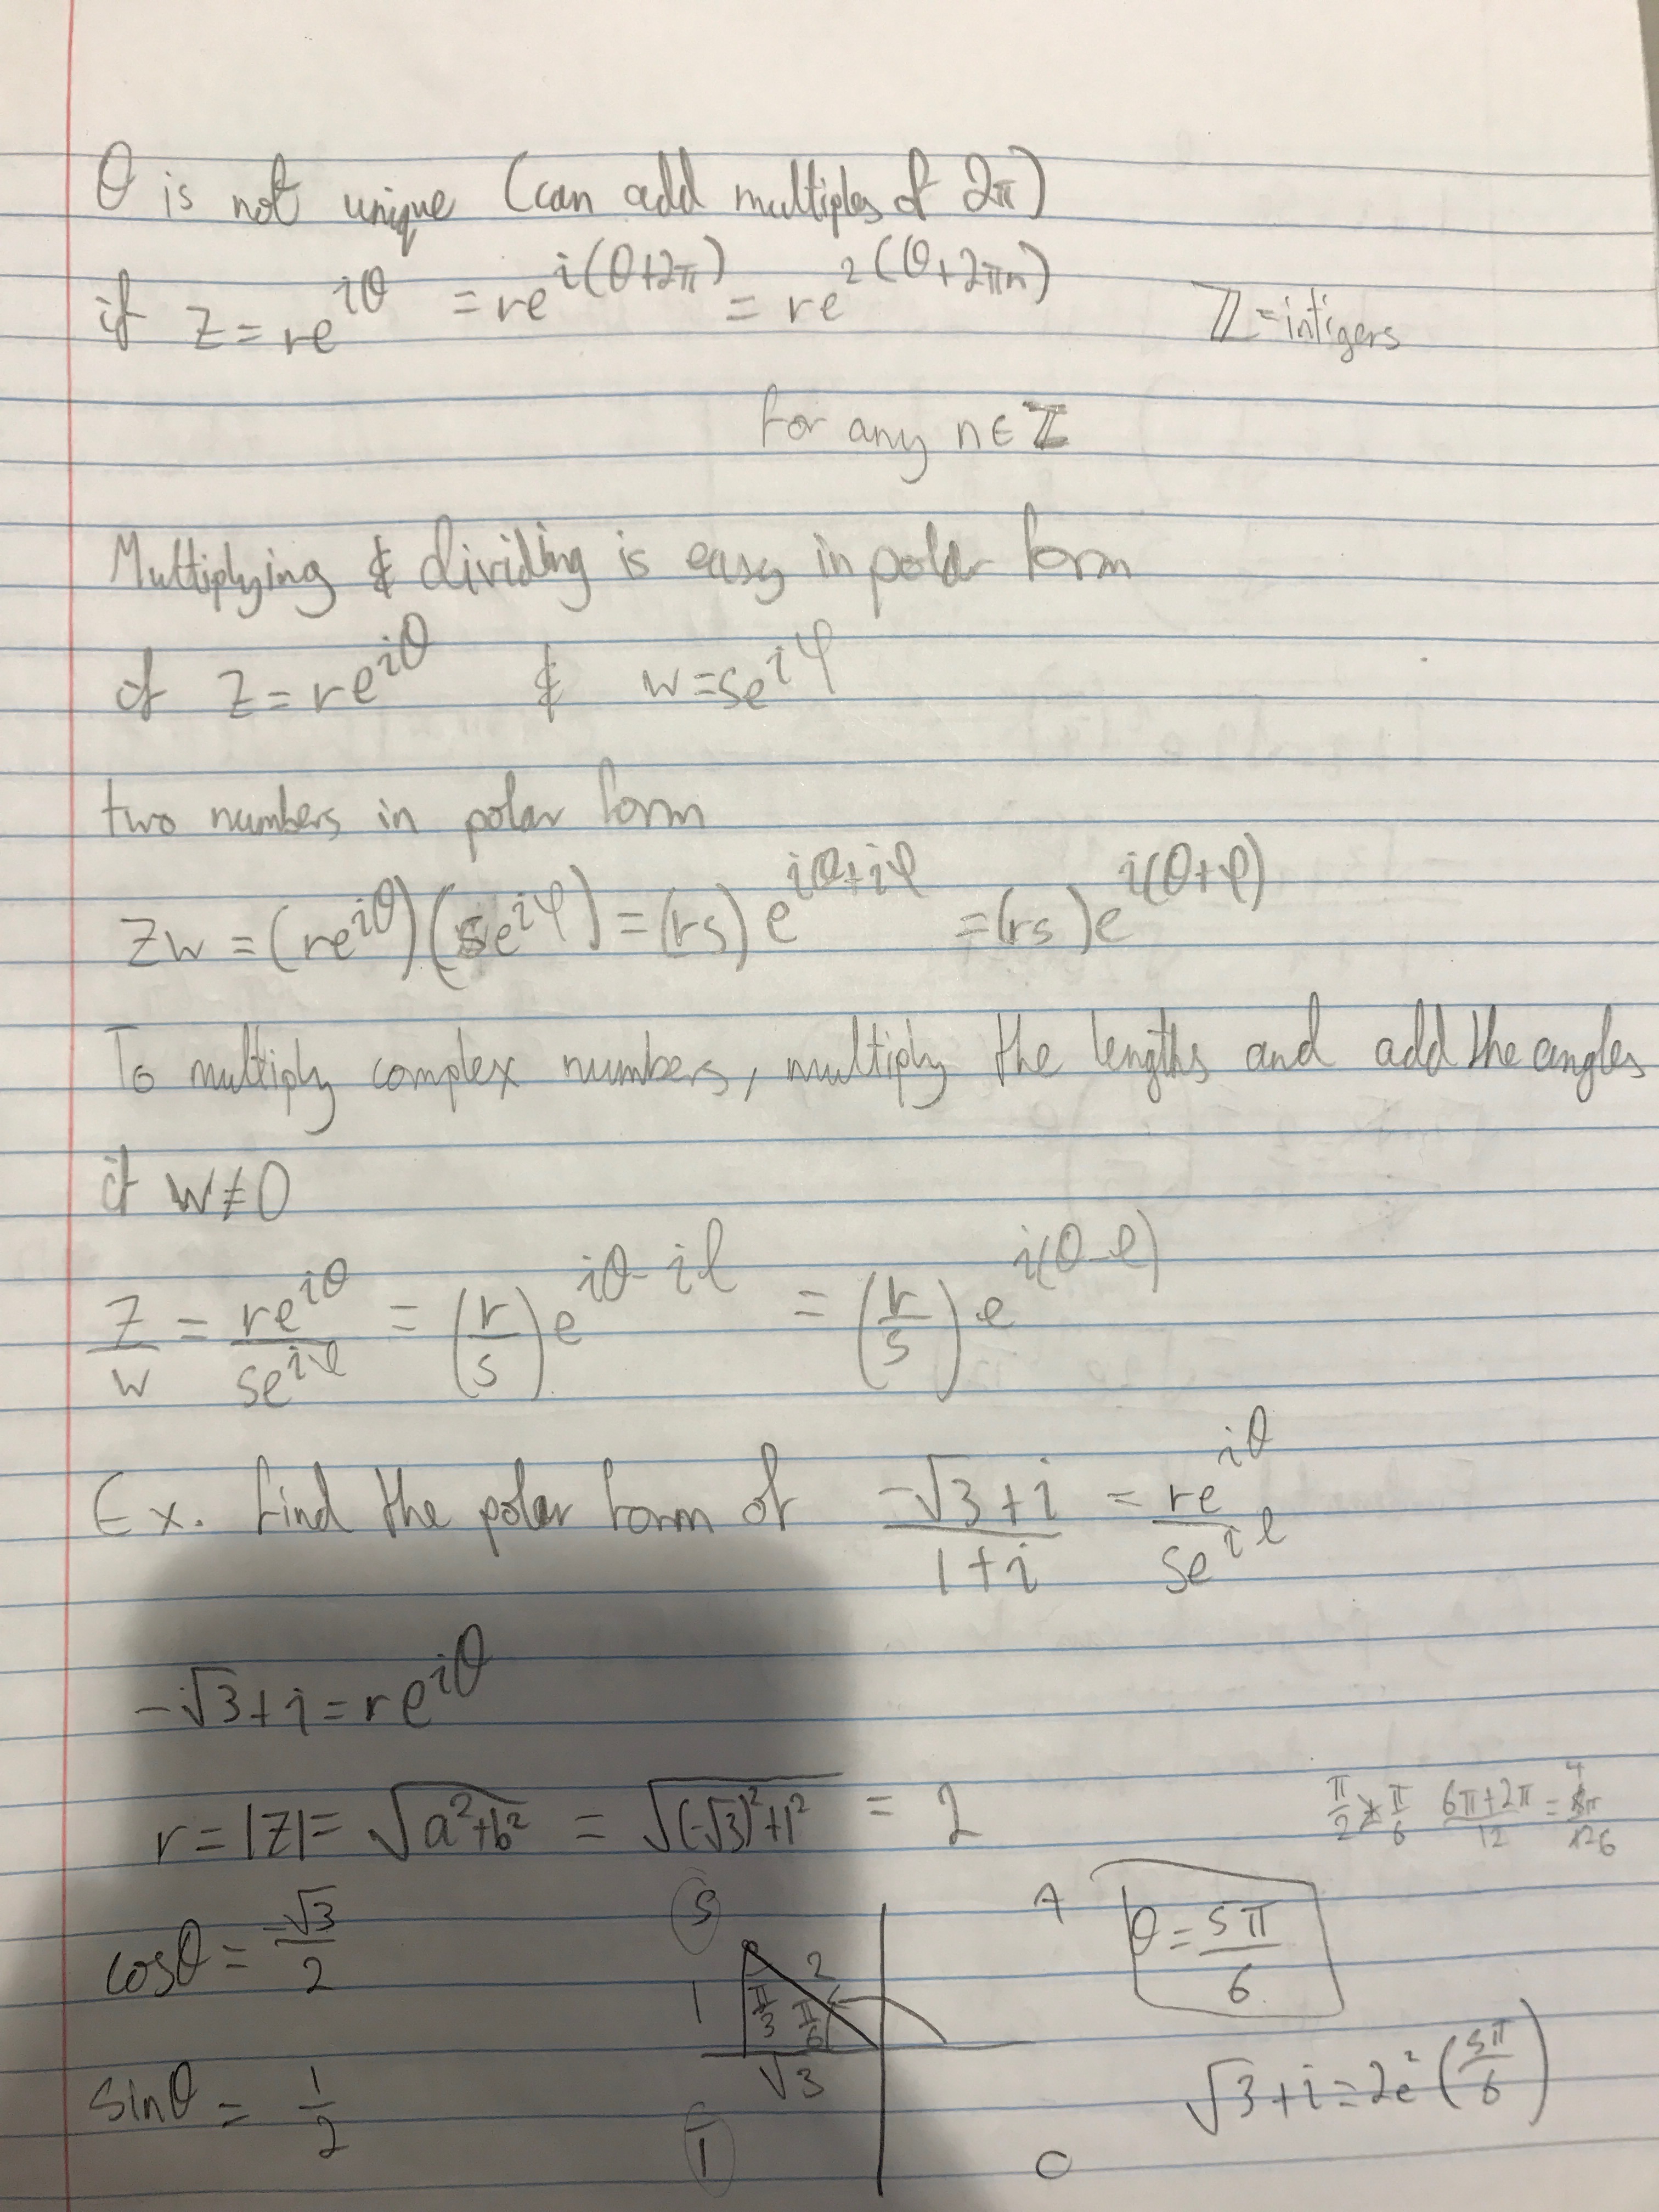 θ is not unique (can add multiples of 2π)
if z = re^{iθ} = re^{i(θ+2π)} = re^{i(θ+2πn)}
ℤ = intigers
for any n ∈ ℤ
Multiplying & dividing is easy in polar form
if z = re^{iθ} & w = se^{iφ}
two numbers in polar form
zw = (re^{iθ})(se^{iφ}) = (rs)e^{iθ+iφ} = (rs)e^{i(θ+φ)}
To multiply complex numbers, multiply the lengths and add the angles
if w ≠ 0
z/w = re^{iθ}/se^{iφ} = (r/s)e^{iθ-iφ} = (r/s)e^{i(θ-φ)}
Ex. find the polar form of (-√3+i)/(1+i) = re^{iθ}/se^{iφ}
-√3+i = re^{iθ}
r = |z| = √(a²+b²) = √((-√3)²+1²) = 2
π/2 + π/6 (6π+2π)/12 =
cosθ = -√3/2
S
A
θ = 5π/6
1 π/3 π/6 2
√3
sinθ = 1/2
√3+i = 2e^{i(5π/6)}
T
C